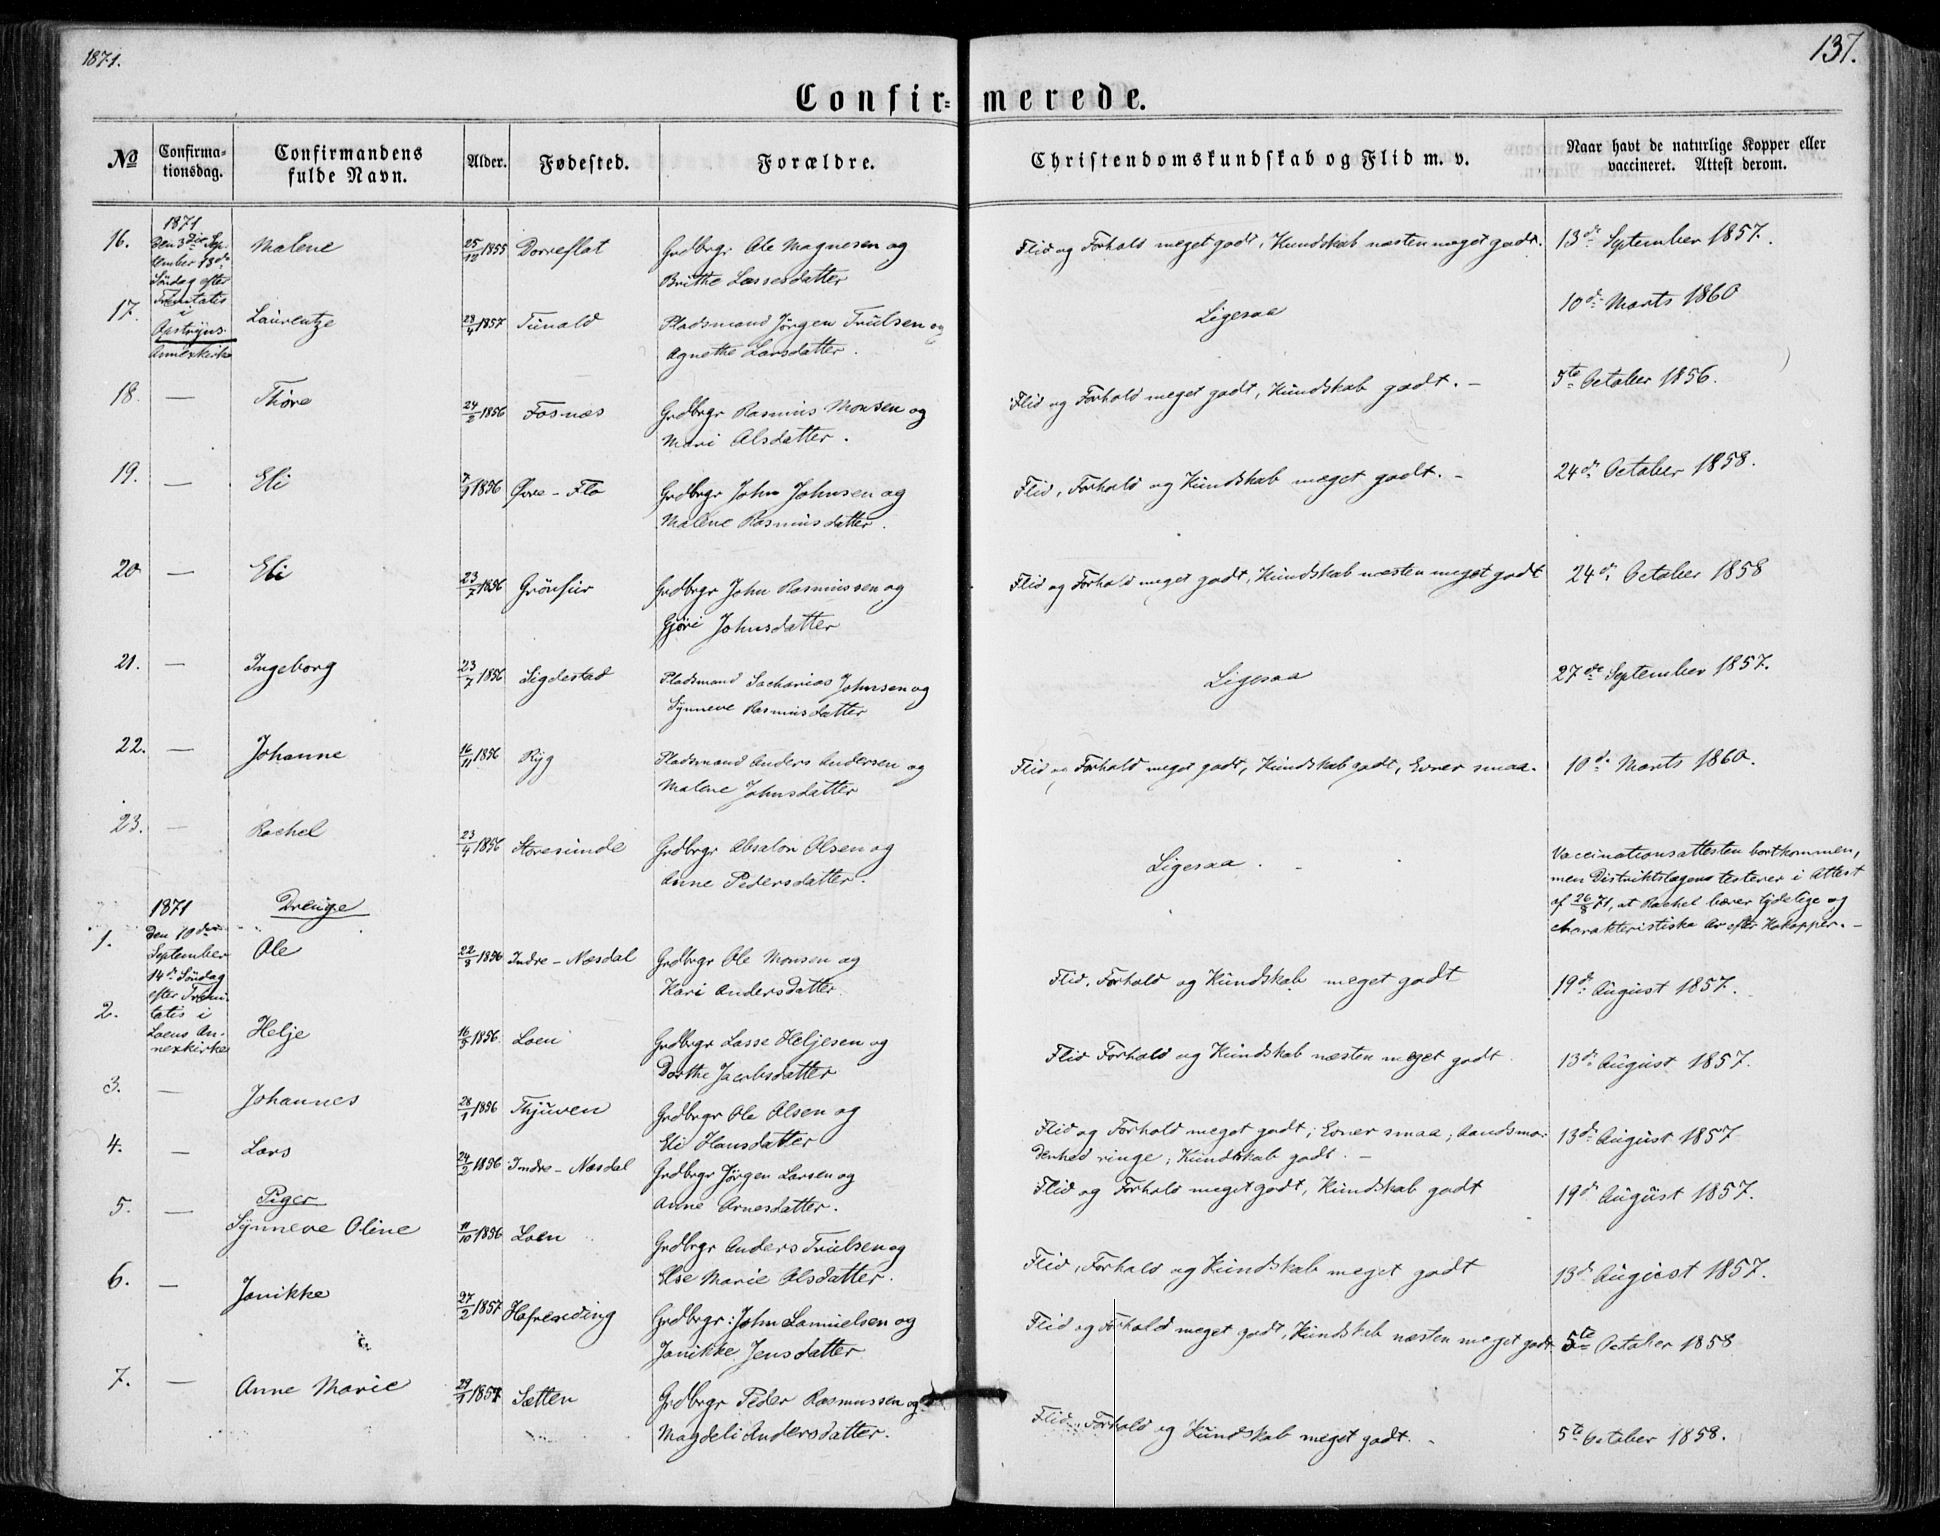 1871.
137.
Confir= merede.
No
Confirma=
tionsdag.
Confirmandens
fulde Navn.
Alder.
Fødested.
Forældre.
Christendomskundskab og Flid m. v.
Naar havt de naturlige Kopper eller
vaccineret. Attest derom.
1871
16. Den 3die Sep- Malene 25/12 1855 Dorreflot Grdbrgr Ole Magnesen og Flid og Forhold meget godt, Kundskab næsten meget godt. 13de September 1857.
tember 13de
Søndag efter Brithe Lassesdatter
Trinitatis
17. i Laurentze 28/4 1857 Tunald Pladsmand Jørgen Trulsen og Ligesaa 10de Marts 1860
Opstryns
Annexkirke Agnethe Larsdatter.
18. — Thore 24/2 1856 Fosnæs Grdbrgr Rasmus Monsen og Flid og Forhold meget godt, Kundskab godt. – 5te October 1856.
Mari Olsdatter.
19. — Eli 7/9 1856 Øvre-Flo Grdbrgr John Johnsen og Flid, Forhold og Kundskab meget godt. – 24de October 1858.
Malene Rasmusdatter.
20 — Eli 23/7 1856 Grønfur Grdbrgr John Rasmussen og Flid og Forhold meget godt, Kundskab næsten meget godt 24de October 1858
Gjøri Johnsdatter
21. — Ingeborg 23/7 1856 Sigdestad Pladsmand Sacharias Johnsen og Ligesaa 27de September 1857.
Synneve Rasmusdatter
22. — Johanne 16/11 1856 Ryg Pladsmand Anders Andersen og Flid og Forhold meget godt, Kundskab godt, Evner smaa. 10de Marts 1860.
Malene Johnsdatter
23. — Rachel 23/4 1856 Storesunde Grdbrgr Absalon Olsen og Ligesaa. – Vaccinationsattesten bortkommen,
Anne Pedersdatter. men Distriktslægen testerer i Attest
af 26/8 71, at Rachel bærer tydelige og
charakteristiske Ar efter Kokopper. –
1871 Drenge
Den 10de
1. September Ole 22/3 1856 Indre-Næsdal Grdbrgr Ole Monsen og Flid, Forhold og Kundskab meget godt 19de August 1857.
14de Søndag
efter Trini- Kari Andersdatter
2. tatis i Helje 16/5 1856 Loen Grdbrgr Lasse Heljesen og Flid Forhold og Kundskab næsten meget godt. 13de August 1857.
Loens An-
nexkirke Dorthe Jacobsdatter
3. — Johannes 28/1 1856 Thjuven Grdbrgr Ole Olsen og Flid og Forhold meget godt; Evner smaa; Aandsmo- 13de August 1857
Eli Hansdatter denhed ringe; Kundskab godt. –
4. — Lars 24/2 1856 Indre-Næsdal Grdbrgr Jørgen Larsen og Flid og Forhold meget godt, Kundskab godt 19de August 1857.
Anne Arnesdatter.
Piger
5. — Synneve Oline 11/10 1856 Loen Grdbrgr Anders Trulsen og Flid, Forhold og Kundskab meget godt 13de August 1857.
Else Marie Olsdatter.
6. — Janikke 27/2 1857 Hafrending Grdbrgr: John Samuelsen og Flid og Forhold meget godt, Kundskab næsten meget godt 5te October 1858
Janikke Jensdatter
7. — Anne Marie 29/1 1857 Sætten Grdbrgr Peder Rasmussen og Flid, Forhold og Kundskab meget godt. – 5te October 1858.
Magdeli Andersdatter.